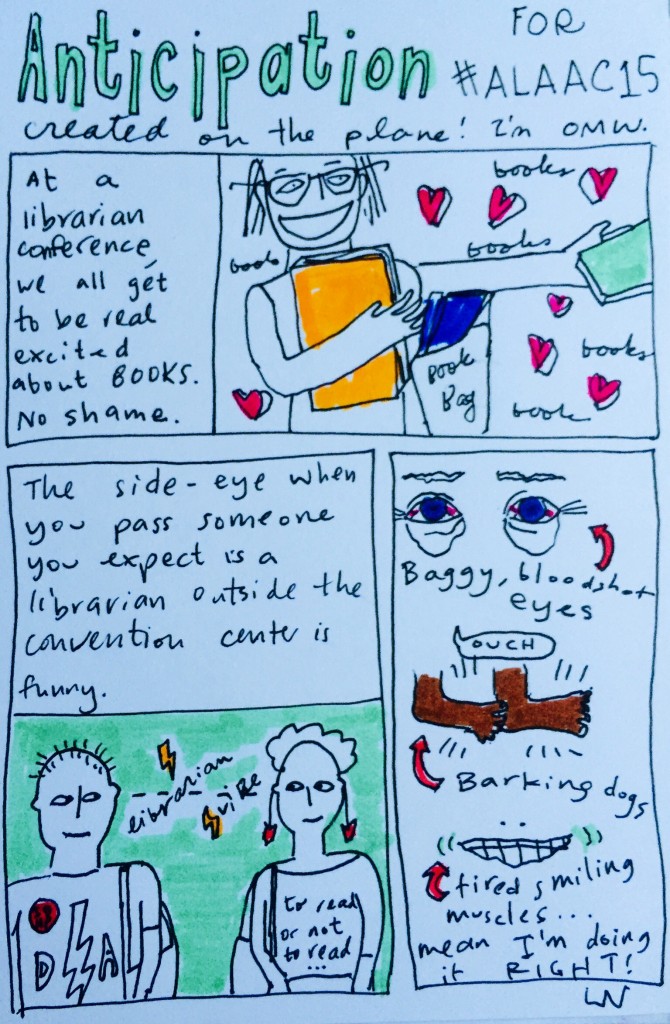 Anticipation
FOR
#ALAAC15
created on the plane! I'm OMW.
At a
librarian
conference,
we all get
to be real
excited
about BOOKS.
No shame.
books
books
book
books
book
Book
Bag
The side-eye when
you pass someone
you expect is a
librarian outside the
convention center is
funny.
librarian
vibe
to read
or not
to read
...
Baggy, bloodshot
eyes
OUCH
Barking dogs
tired smiling
muscles...
mean I'm doing
it RIGHT!